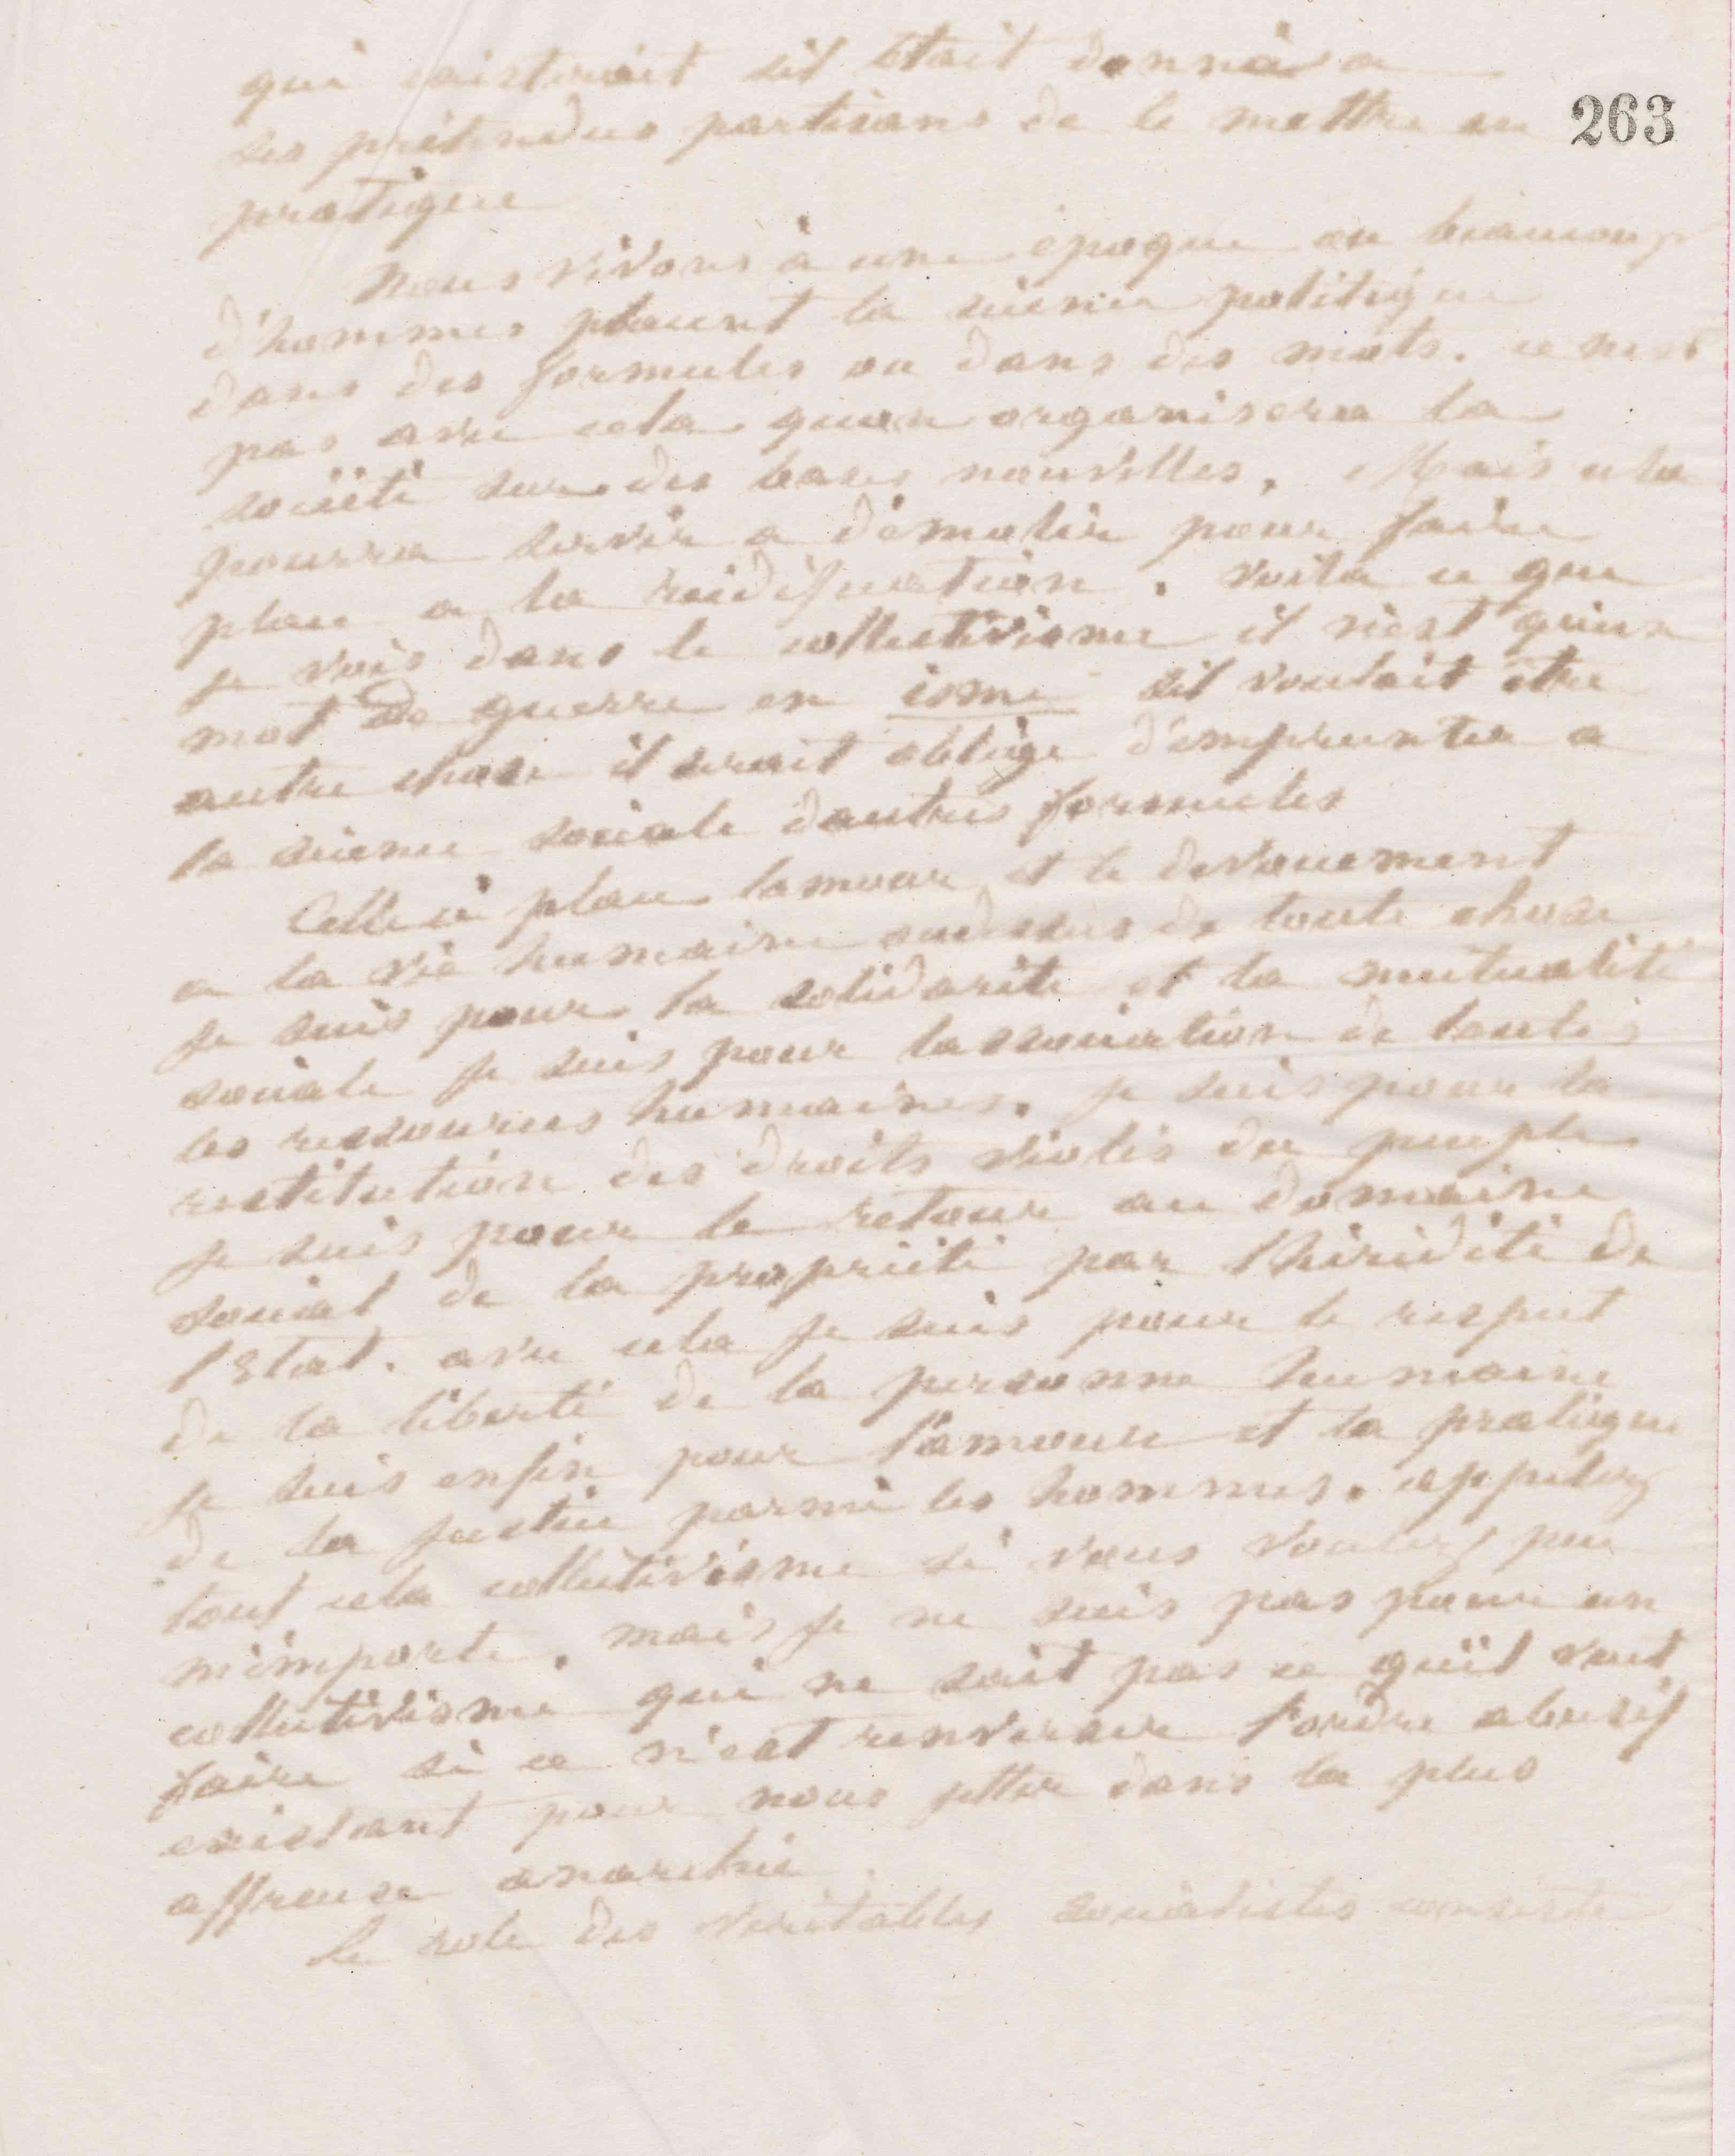 qui existerait s'il était donné à
ses prétendus partisans de le mettre en
263
pratique
Nous vivons à une époque ou beaucoup
d'hommes placent la science politique
dans des formules ou dans des mots. ce n'est
pas avec cela qu'on organisera la
société sur des bases nouvelles. Mais cela
pourra servir a démolir pour faire
place a la réédification. voila ce que
je vois dans le collectivisme il n'est qu'un
mot de guerre en isme sil voulait être
autre chose il serait obligé d'emprunter a
la science sociale dautres formules
Celle ci place lamour et le devouement
a la vie humaine audessus de toute chose
je suis pour la solidarité et la mutualité
sociale je suis pour lassociation de toutes
les ressources humaines. je suis pour la
restitution des droits violés du peuple
je suis pour le retour au domaine
social de la propriété par l'hérédité de
l'Etat. avec cela je suis pour le respect
de la liberté de la personne humaine
je suis enfin pour l'amour et la pratique
de la justice parmi les hommes. appelez
tout cela collectivisme si vous voulez peu
m'importe. mais je ne suis pas pour un
collectivisme qui ne sait pas ce qu'il veut
faire si ce n'est renverser l'ordre abusif
existant pour nous jetter dans la plus
affreuse anarchie.
Le role des veritables socialistes consiste